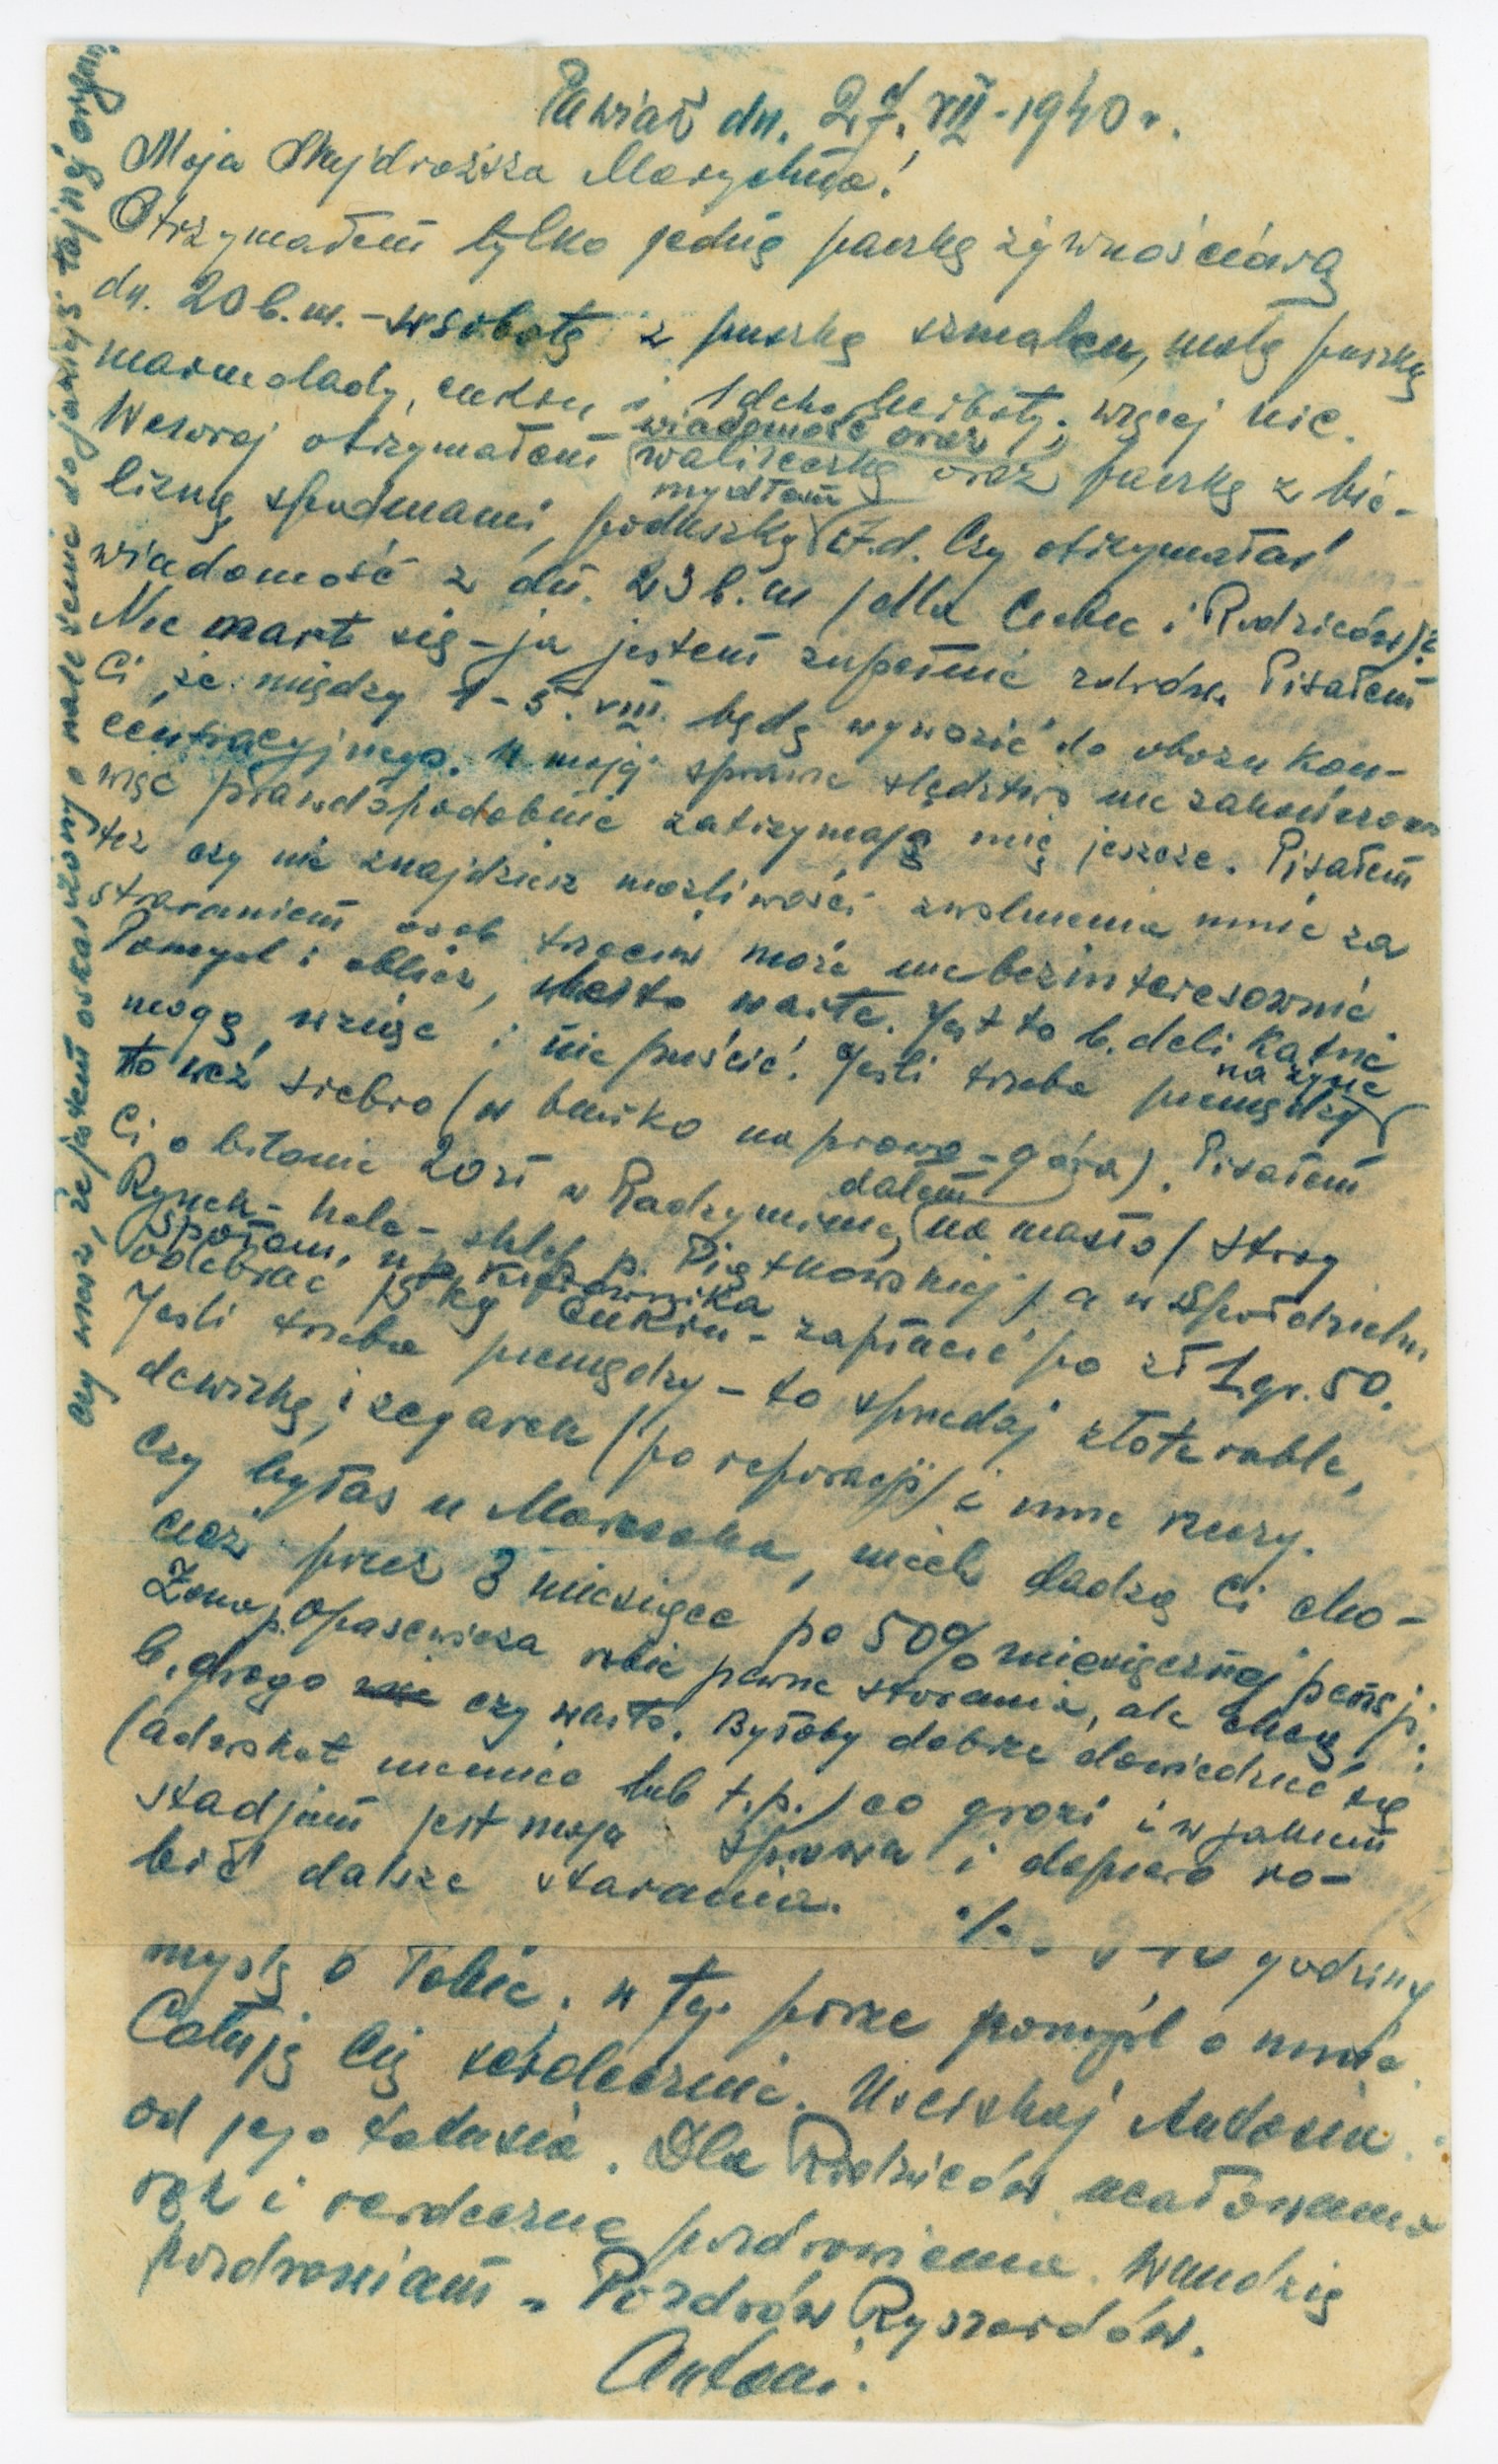 Pawiak dn. 27. VII - 1940 r.
Moja Najdroższa Marychno!
Otrzymałem tylko jedną paczkę żywnościową
dn. 20 b.m. - w sobotę z puszką szmalcu, małą puszką
marmolady, cukru i 1 deko herbaty; więcej nic.
wiadomość oraz
Wczoraj otrzymałem walizeczkę oraz paczkę z bie-
mydłem
lizną, spodniami, poduszką i t.d. Czy otrzymałaś
wiadomość z dn. 23 b.m /dla Ciebie i Rodziców/?
Nie martw się - ja jestem zupełnie zdrów. Pisałem
Ci, że między 1 - 5. VIII. będą wywozić do obozu kon-
centracyjnego. W mojej sprawie śledztwo nie zakończone
więc prawdopodobnie zatrzymają mię jeszcze. Pisałem
też czy nie znajdziesz możliwości zwolnienia mnie za
staraniem osób trzecich może nie bezinteresownie.
Pomyśl i oblicz, czy to warte. Jest to b. delikatne
mogą wziąć i nie puścić. Jeśli trzeba pieniędzy
na życie
to weź srebro (w biurko na prawo - góra). Pisałem
Ci o bilonie 20 zł w Radzyminie,
dałem
na masło / Stary
Rynek - hala - sklep p. Piątkowskiej / a w Spółdzielni
Społem, u p. Kierownika
odebrać 15 kg cukru - zapłacić po zł 1 gr. 50.
Jeśli trzeba pieniędzy - to sprzedaj złote ruble,
dewizkę, i zegarek (po reperacji) i inne rzeczy.
Czy byłaś u niech dadzą Ci cho-
ciaż przez 3 miesiące po 50% miesięcznej pensji.
Żona p. Opasewicza robi pewne starania, ale chcą
b. drogo czy warto. Byłoby dobrze dowiedzieć się
(adwokat niemiec lub t.p.) co grozi i w jakiem
stadjum jest moja sprawa i dopiero ro-
bić dalsze starania. ./.
godziny
myślę o Tobie, w tej porze pomyśl o mnie.
Całuję Cię serdecznie. Uściskaj Antosia
od jego tatusia. Dla Rodziców ucałowania
rąk i serdeczne pozdrowienia. Wandzię
pozdrawiam. Pozdrów Ryszardów.
Antoni.
czy wiesz, że jestem oskarżony o należenie do jakiejś tajnej organ.